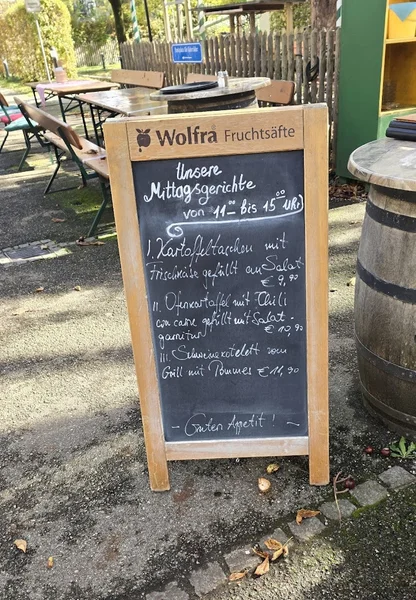 Wolfra Fruchtsäfte
Unsere
Mittagsgerichte
von 11⁰⁰ bis 15⁰⁰ Uhr
I. Kartoffeltaschen mit
Frischkäse gefüllt an Salat
€ 9,90
II. Ofenkartoffel mit Chili
con carne gefüllt mit Salat-
garnitur € 10,90
III. Schweinekotelett vom
Grill mit Pommes € 11,90
- Guten Appetit! ~